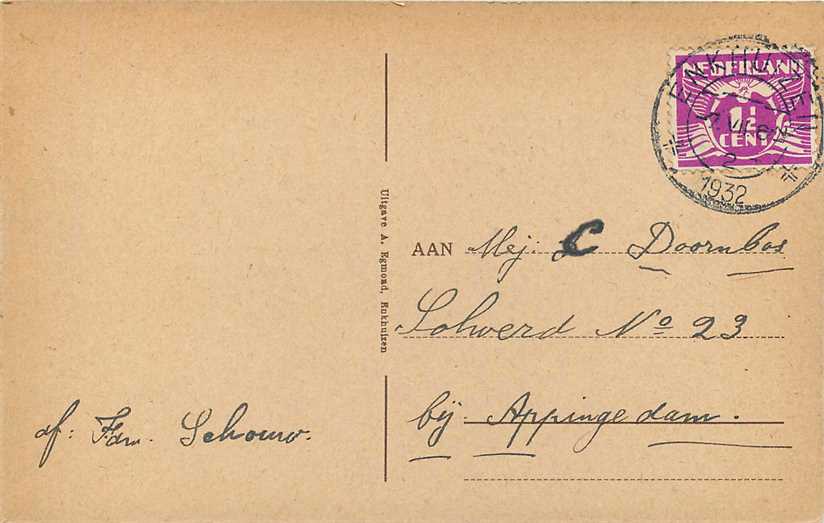 NEDERLAND
1½
CENT
ENKHUIZEN
1932
AAN Mej: C Doornbos
Solwerd No 23
bij Appingedam.
af: Fam. Schouw.
Uitgave A. Egmond, Enkhuizen